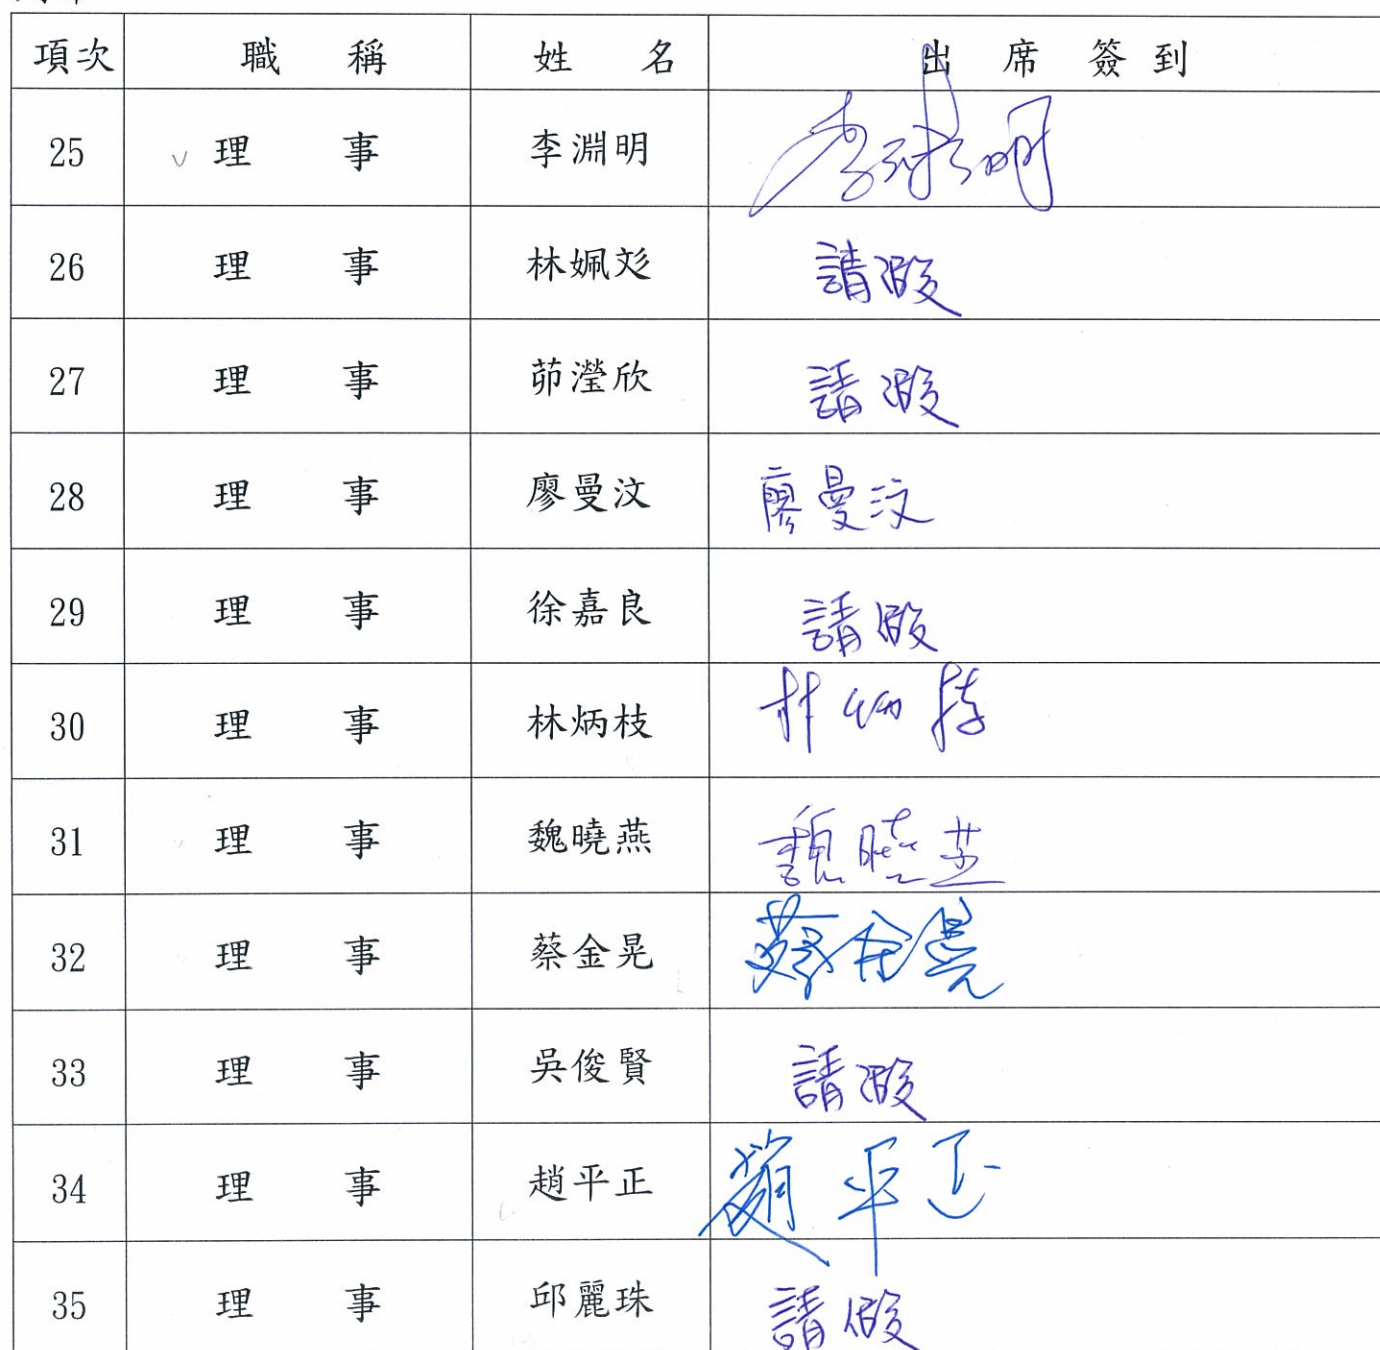 項次 職稱 姓名 出席簽到
25 理事 李淵明 李淵明
26 理事 林姵彣 請假
27 理事 茆瀅欣 請假
28 理事 廖曼汶 廖曼汶
29 理事 徐嘉良 請假
30 理事 林炳枝 林炳枝
31 理事 魏曉燕 魏曉燕
32 理事 蔡金晃 蔡金晃
33 理事 吳俊賢 請假
34 理事 趙平正 趙平正
35 理事 邱麗珠 請假